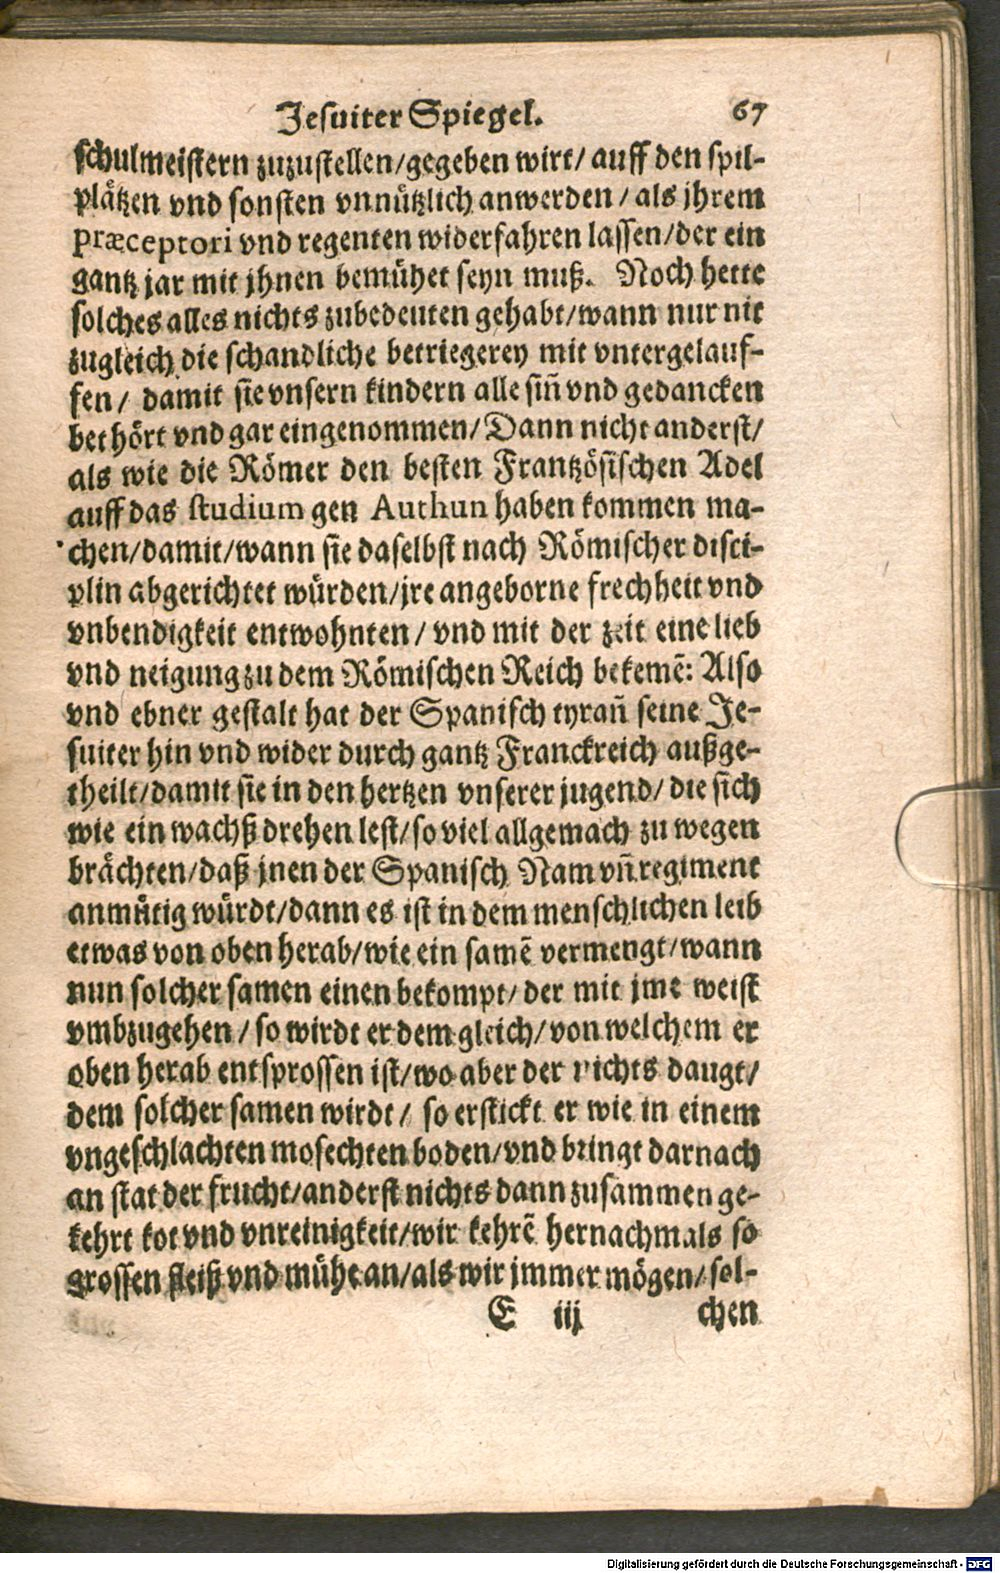 Jesuiter Spiegel. 67
schulmeistern zuzustellen/gegeben wirt/ auff den spil-
plätzen vnd sonsten vnnützlich anwerden / als jhrem
præceptori vnd regenten widerfahren lassen/der ein
gantz jar mit jhnen bemühet seyn muß. Noch hette
solches alles nichts zubedeuten gehabt/wann nur nit
zugleich die schandliche betriegerey mit vntergelauf-
fen/ damit sie vnsern kindern alle sin̄ vnd gedancken
bethört vnd gar eingenommen/Dann nicht anderst/
als wie die Römer den besten Frantzösischen Adel
auff das studium gen Authun haben kommen ma-
chen/damit/wann sie daselbst nach Römischer disci-
plin abgerichtet würden/jre angeborne frechheit vnd
vnbendigkeit entwohnten/ vnd mit der zeit eine lieb
vnd neigung zu dem Römischen Reich bekemē: Also
vnd ebner gestalt hat der Spanisch tyran̄ seine Je-
suiter hin vnd wider durch gantz Franckreich außge-
theilt/damit sie in den hertzen vnserer jugend/ die sich
wie ein wachß drehen lest/so viel allgemach zu wegen
brächten/daß jnen der Spanisch Nam vn̄ regiment
anmütig würdt/dann es ist in dem menschlichen leib
etwas von oben herab/wie ein samē vermengt/wann
nun solcher samen einen bekompt/ der mit jme weist
vmbzugehen / so wirdt er dem gleich/ von welchem er
oben herab entsprossen ist/wo aber der nichts daugt/
dem solcher samen wirdt/ so erstickt er wie in einem
vngeschlachten mosechten boden/vnd bringt darnach
an stat der frucht/anderst nichts dann zusammen ge-
kehrt kot vnd vnreinigkeit/wir kehrē hernachmals so
grossen fleiß vnd mühe an/als wir jmmer mögen/sol-
E iij chen
Digitalisierung gefördert durch die Deutsche Forschungsgemeinschaft - DFG